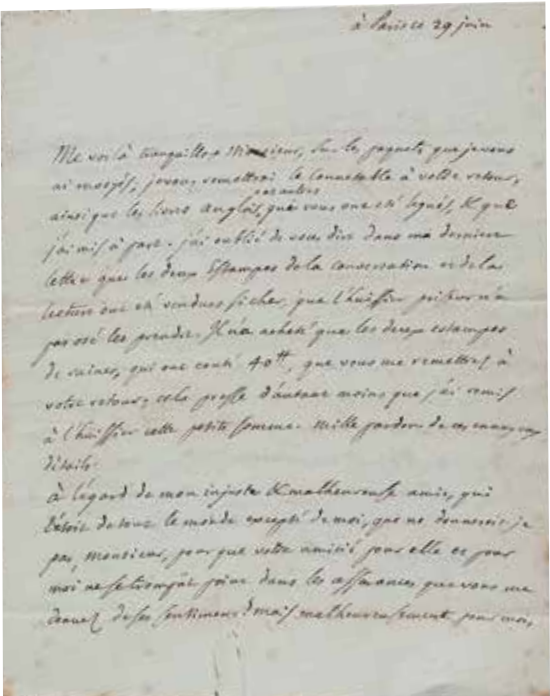 à Paris ce 29 juin
Me voilà tranquille, Monsieur, sur les paquets que je vous
ai envoyés, je vous remettrai le Connétable à votre retour,
ainsi que les livres anglais, qui vous ont été légués, & que
j'ai mis à part. j'ai oublié de vous dire dans ma dernière
lettre que les deux Estampes de la conversation et de la
lecture ont été vendues si cher, que l'huissier priseur n'a
pas osé les prendre. Il n'a acheté que les deux estampes
de ruines, qui ont couté 40tt, que vous me remettrez à
votre retour; cela presse d'autant moins que j'ai remis
à l'huissier cette petite somme. mille pardons de ces ennuyeux
détails.
à l'égard de mon injuste & malheureuse amie, qui
l'étoit de tout le monde excepté de moi, que ne donnerois je
pas, monsieur, pour que votre amitié pour elle et pour
moi ne se trompât point dans les assurances que vous me
donnez de ses sentimens! mais malheureusement pour moi,